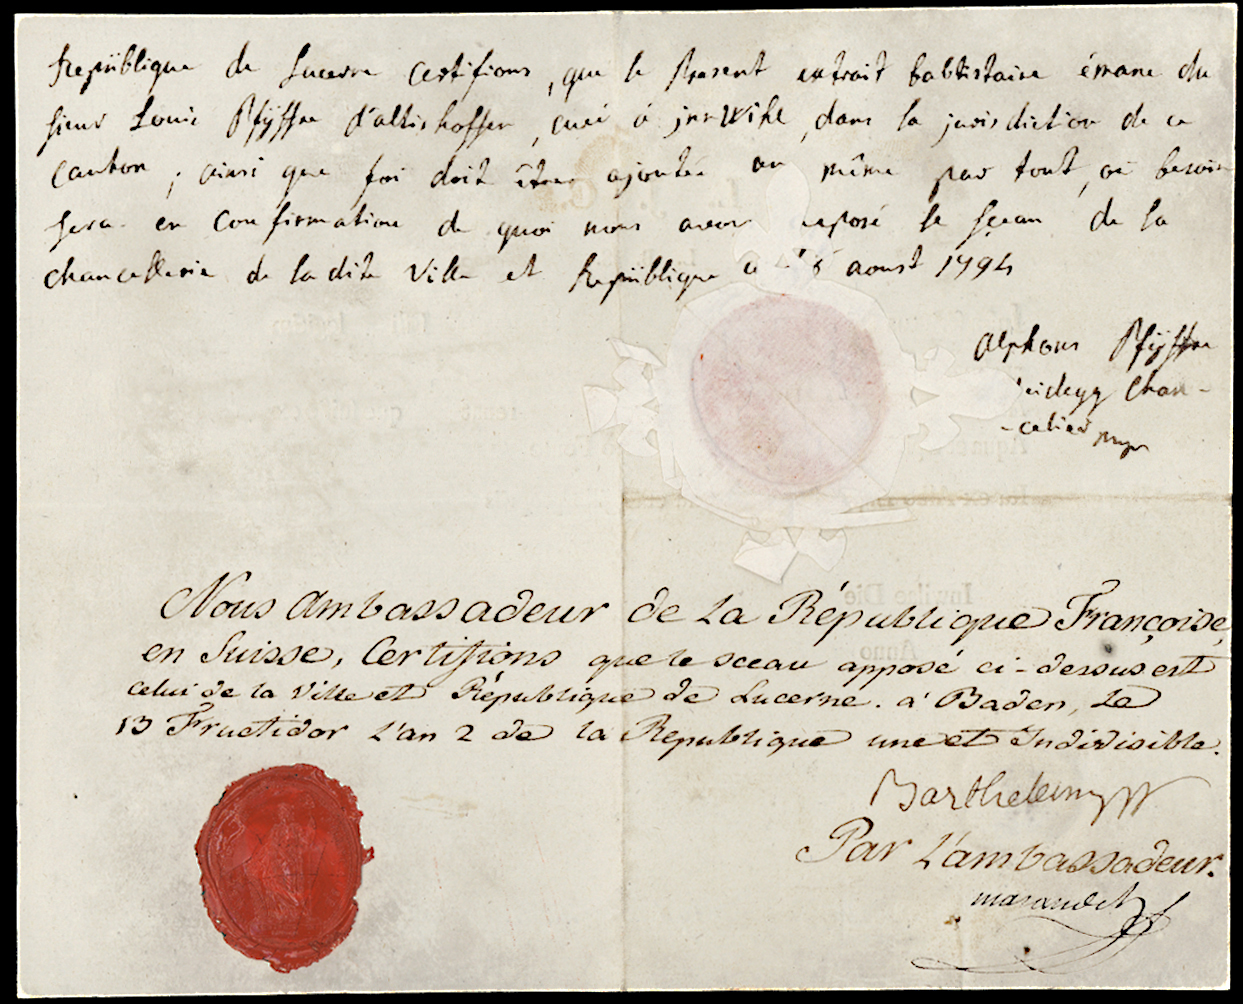 Repúblique de Lucerne Certifions, que le Present extrait babtistaire émane du
sieur Louis Pfÿffer d'altishoffen, curé á jnnWihl, dans la jurisdiction de ce
Canton; ainsi que foi doit être ajoutée au même par tout, où besoin
sera. en Confirmation de quoi nous avons apposé le sçeau de la
chancellerie de la dite Ville et Repúblique aoust 1794
Alphons Pfÿffer
Heidegg Chan-
-celier mpr
Nous Ambassadeur de la République Françoise,
en Suisse, Certifions que le sceau apposé ci-dessus est
celui de la Ville et République de Lucerne. á Baden, le
13 Fructidor l'an 2 de la Republique une et Indivisible.
Barthelemy
Par L'ambassadeur.
marandet